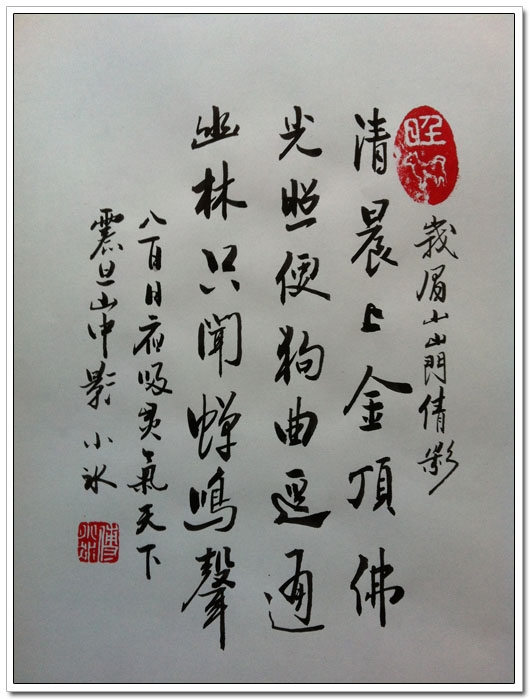 峩眉小山門倩影
清晨上金頂佛
光照便狗曲逕通
幽林只聞蟬鳴聲
八百日夜吸灵氣天下
震旦山中影小冰